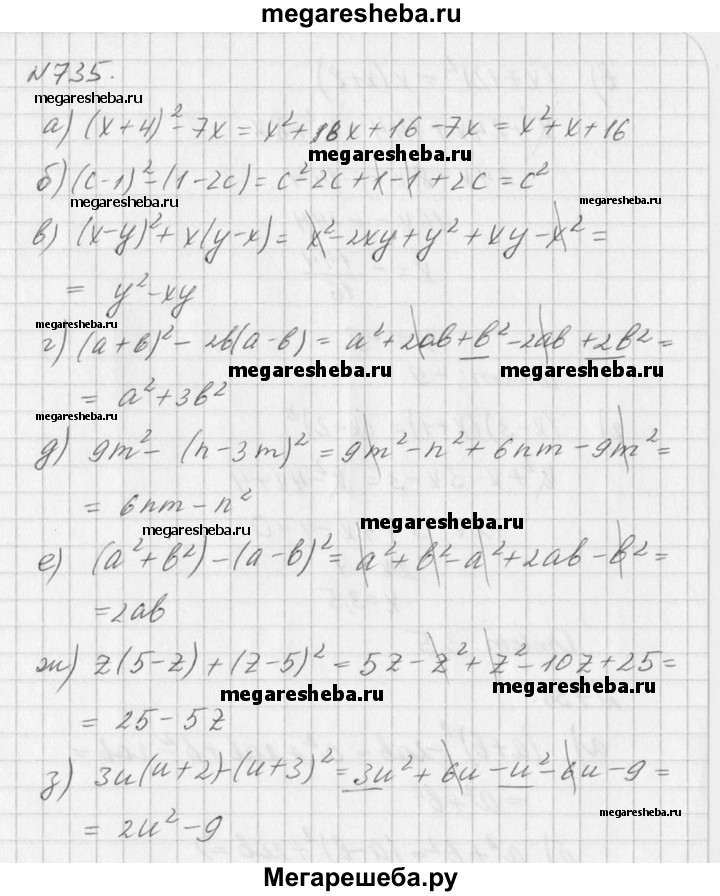 megaresheba.ru
№735.
megaresheba.ru
а) (x+4)² - 7x = x² + 18x + 16 - 7x = x² + x + 16
megaresheba.ru
б) (c-1)² - (1-2c) = c² - 2c + 1 - 1 + 2c = c²
megaresheba.ru
megaresheba.ru
в) (x-y)² + x(y-x) = x² - 2xy + y² + xy - x² =
= y² - xy
megaresheba.ru
г) (a+b)² - 2b(a-b) = a² + 2ab + b² - 2ab + 2b² =
megaresheba.ru
megaresheba.ru
= a² + 3b²
megaresheba.ru
д) 9m² - (n-3m)² = 9m² - n² + 6nm - 9m² =
= 6nm - n²
megaresheba.ru
megaresheba.ru
е) (a² + b²) - (a-b)² = a² + b² - a² + 2ab - b² =
= 2ab
ж) z(5-z) + (z-5)² = 5z - z² + z² - 10z + 25 =
megaresheba.ru
megaresheba.ru
= 25 - 5z
з) 3u(u+2) - (u+3)² = 3u² + 6u - u² - 6u - 9 =
megaresheba.ru
= 2u² - 9
Мегарешеба.ру